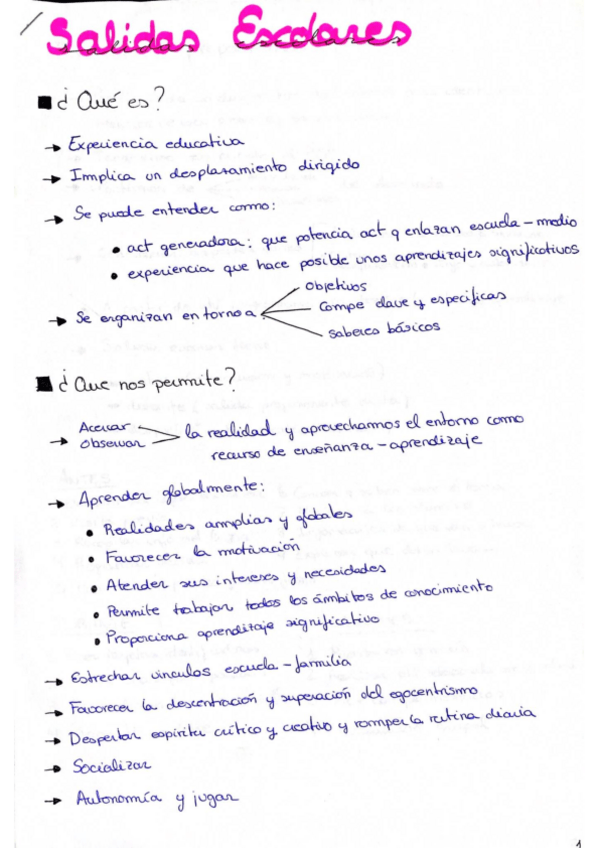 Salidas Escolares
¿Qué es?
→ Experiencia educativa
→ Implica un desplazamiento dirigido
→ Se puede entender como:
• act generadora: que potencia act q enlazan escuela - medio
• experiencia que hace posible unos aprendizajes significativos
→ Se organizan en torno a
Objetivos
Compe clave y especificas
saberes básicos
¿Que nos permite?
→ Acercar
Observar
la realidad y aprovecharnos el entorno como
recurso de enseñanza - aprendizaje
→ Aprender globalmente:
• Realidades amplias y globales
• Favorecer la motivación
• Atender sus intereses y necesidades
• Permite trabajar todos los ámbitos de conocimiento
• Proporciona aprendizaje significativo
→ Estrechar vinculos escuela - familia
→ Favorecer la descentración y superación del egocentrismo
→ Despertar espiritu crítico y creativo y romper la rutina diaria
→ Socializar
→ Autonomía y jugar
1